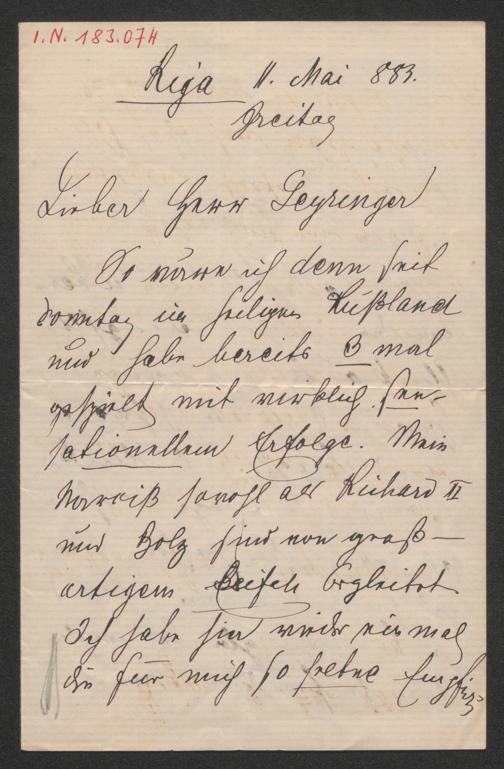 I.N. 183.074
Riga 11. Mai 883.
Freitag
Lieber Herr Geyringer
So wäre ich denn seit
Sonntag im heiligen Rußland
und habe bereits 3 mal
gespielt mit wirklich sen-
sationellem Erfolge. Mein
Narciß sowohl als Richard II
und Bolz sind von groß-
artigem Beifall begleitet
Ich habe hier wieder einmal
die für mich so seltne